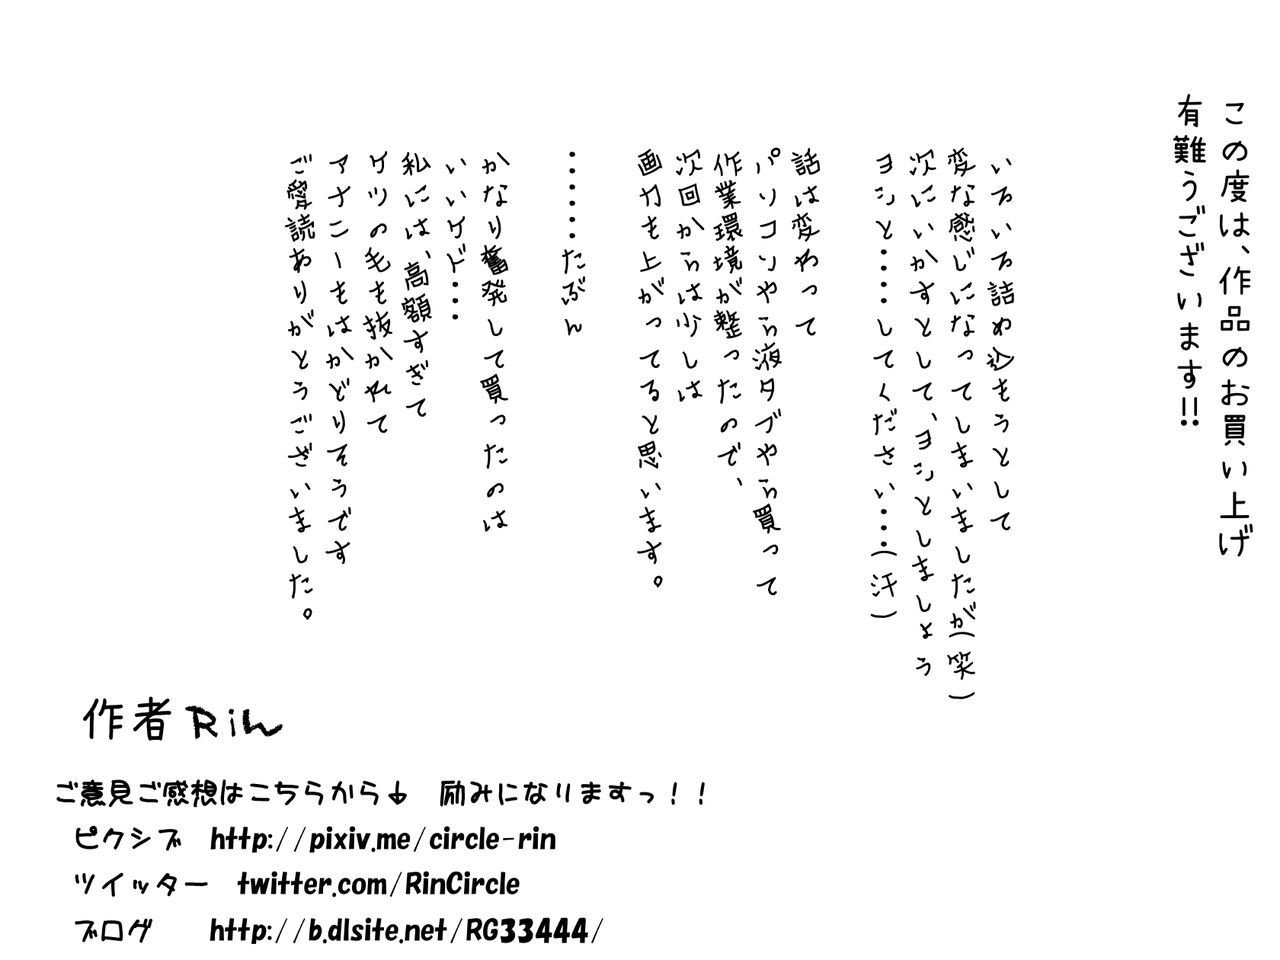 この度は、作品のお買い上げ
有難うございます!!
いろいろ詰め込もうとして
変な感じになってしまいましたが(笑)
次にいかすとして、ヨシとしましょう
ヨシと・・・・してください・・・(汗)
話は変わって
パソコンやら液タブやら買って
作業環境が整ったので、
次回からは少しは
画力も上がってると思います。
・・・・・たぶん
かなり奮発して買ったのは
いいけド・・・
私には、高額すぎて
ケツの毛も抜かれて
アナニーもはかどりそうです
ご愛読ありがとうございました。
作者Rin
ご意見ご感想はこちらから↓　励みになりますっ！！
ピクシブ　http://pixiv.me/circle-rin
ツイッター　twitter.com/RinCircle
ブログ　http://b.dlsite.net/RG33444/